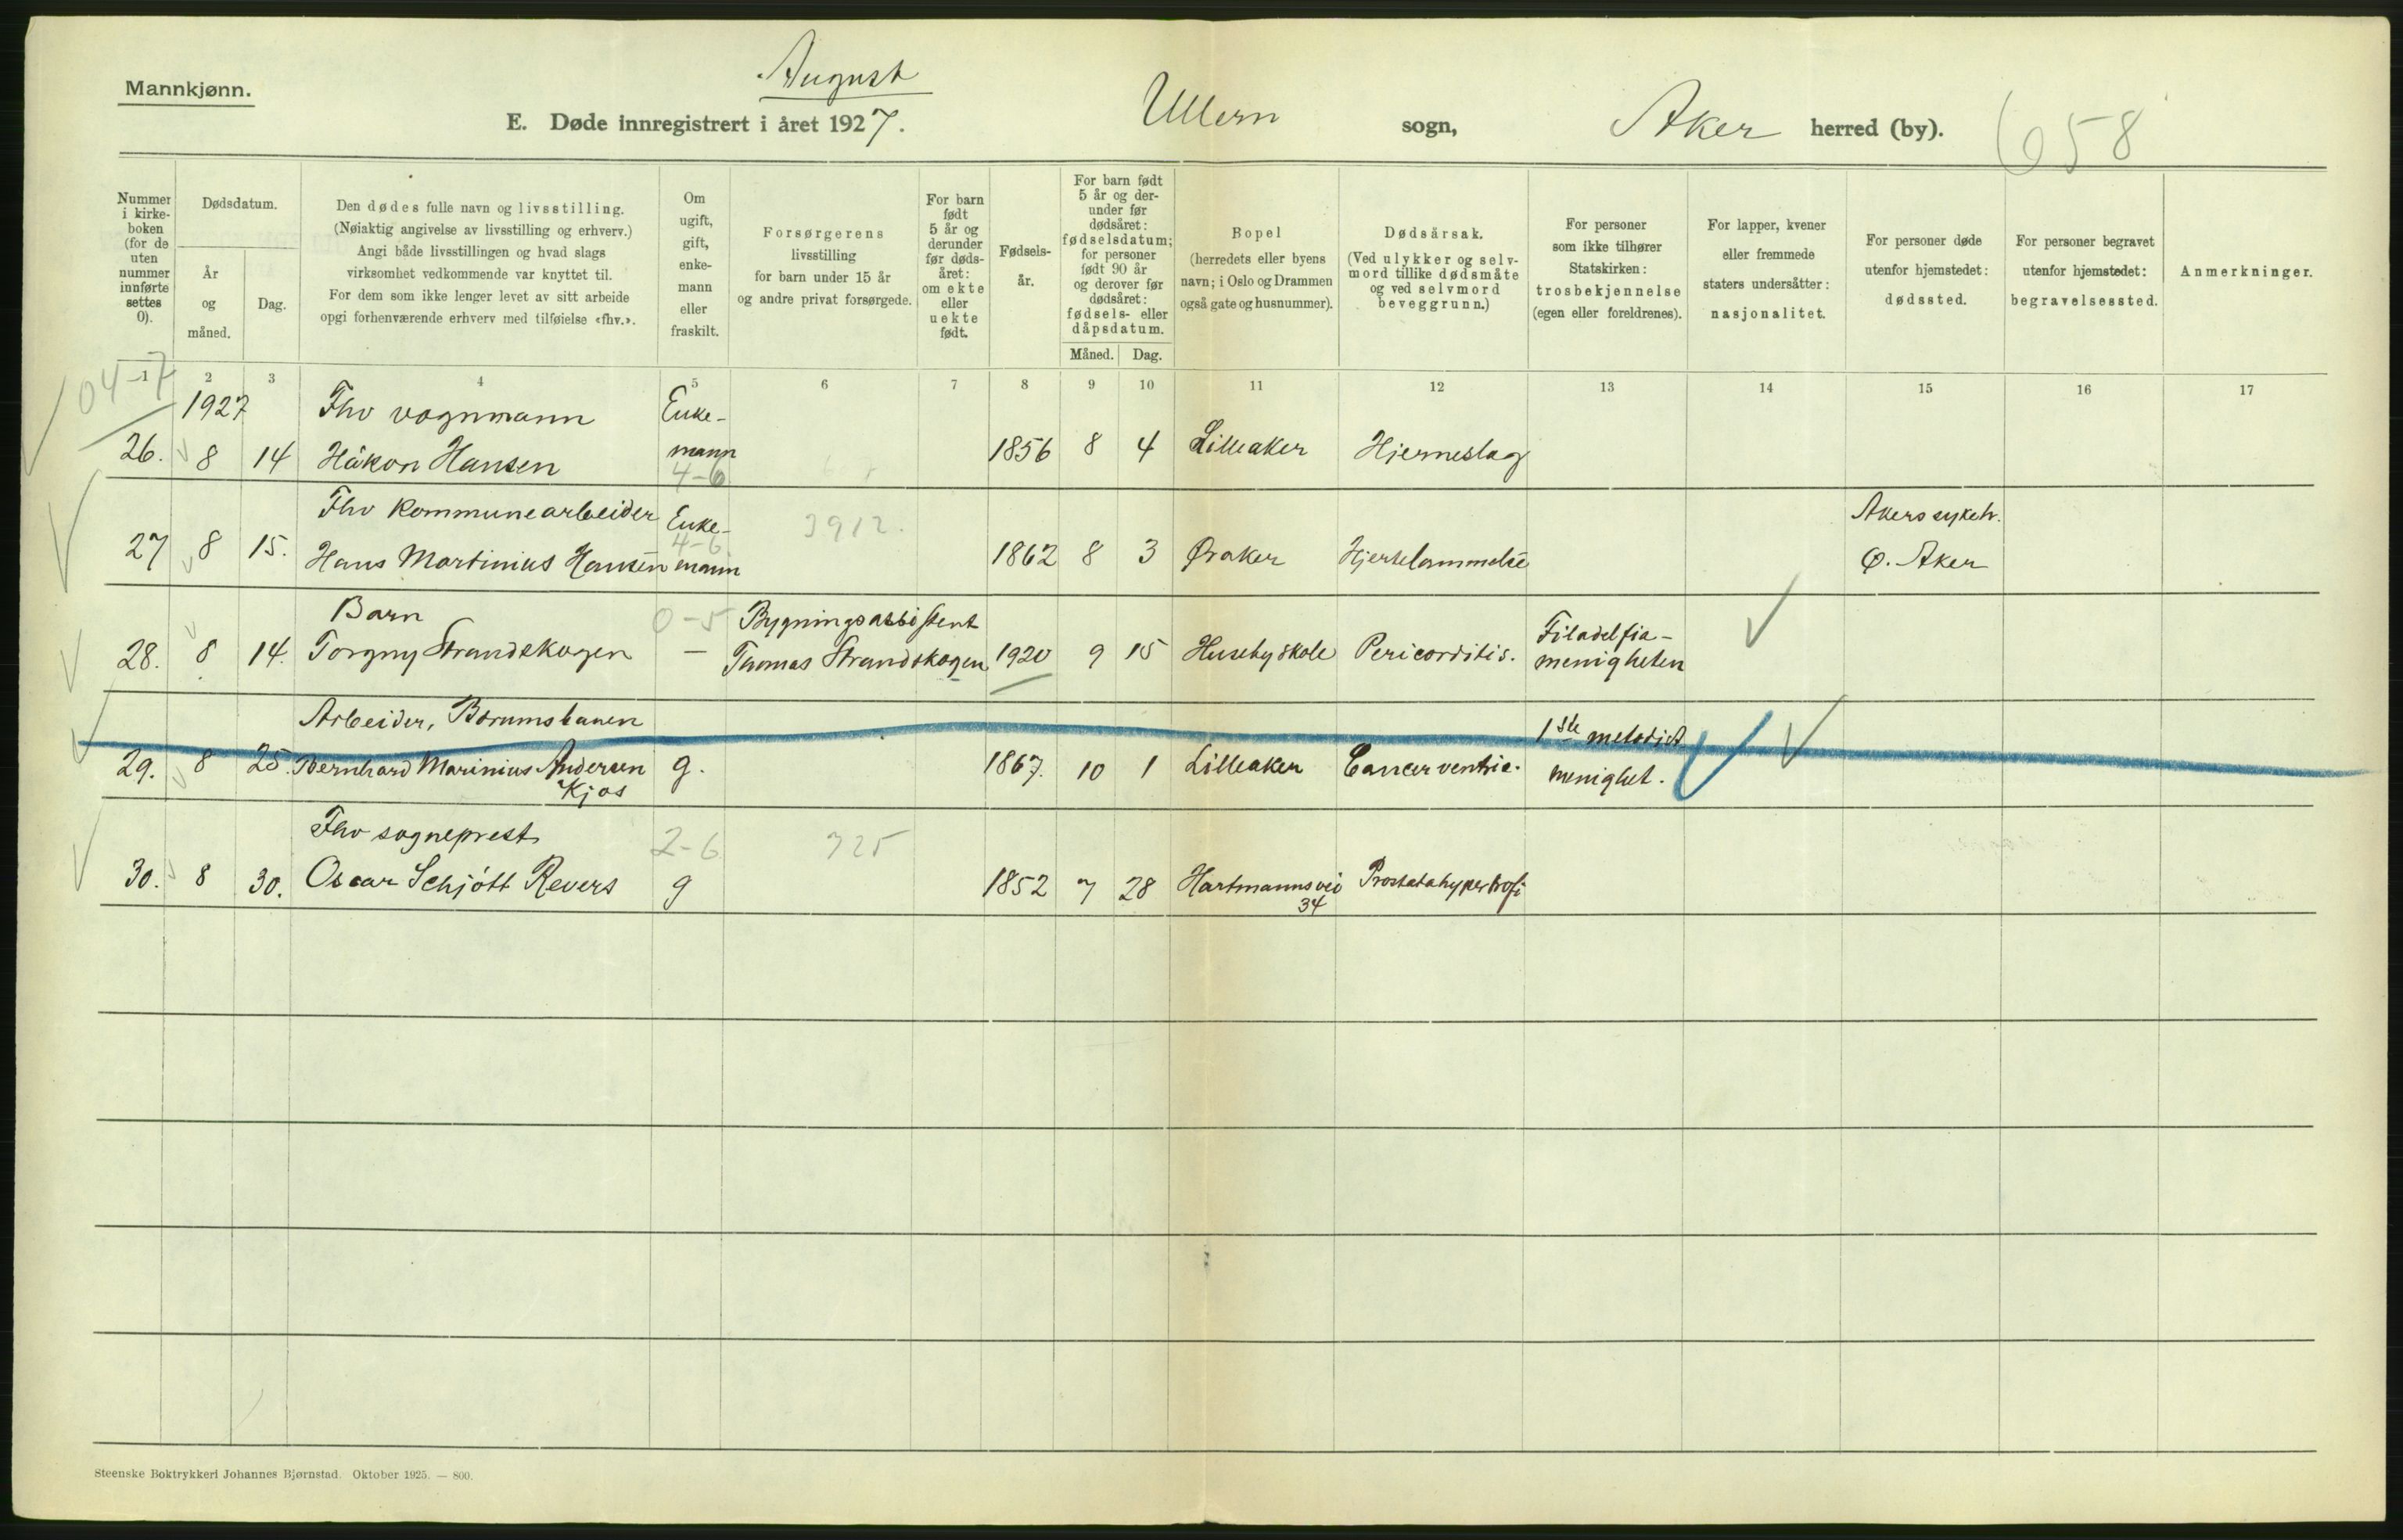 August
Mannkjønn.
E. Døde innregistrert i året 1927. Ullern sogn, Aker herred (by). 658
Nummer i kirke-boken (for de uten nummer innførte settes 0).
Dødsdatum.
År og måned.
Dag.
Den dødes fulle navn og livsstilling.
(Nøiaktig angivelse av livsstilling og erhverv.)
Angi både livsstillingen og hvad slags
virksomhet vedkommende var knyttet til.
For dem som ikke lenger levet av sitt arbeide
opgi forhenværende erhverv med tilføielse «fhv.».
Om ugift, gift, enke-mann eller fraskilt.
Forsørgerens
livsstilling
for barn under 15 år
og andre privat forsørgede.
For barn født 5 år og derunder før døds-året: om ekte eller uekte født.
Fødsels-år.
For barn født 5 år og der-under før dødsåret: fødselsdatum; for personer født 90 år og derover før dødsåret: fødsels- eller dåpsdatum.
Måned. Dag.
Bopel
(herredets eller byens
navn; i Oslo og Drammen
også gate og husnummer).
Dødsårsak.
(Ved ulykker og selv-
mord tillike dødsmåte
og ved selvmord
beveggrunn.)
For personer
som ikke tilhører
Statskirken:
trosbekjennelse
(egen eller foreldrenes).
For lapper, kvener
eller fremmede
staters undersåtter:
nasjonalitet.
For personer døde
utenfor hjemstedet:
dødssted.
For personer begravet
utenfor hjemstedet:
begravelsessted.
Anmerkninger.
1 2 3 4 5 6 7 8 9 10 11 12 13 14 15 16 17
04-7
1927 Fhv vognmann Enke-
26. 8 14 Håkon Hansen mann 1856 8 4 Lilleaker Hjerneslag
4-6
Fhv Kommunearbeider Enke- 3912. Akers sykeh.
4-6
27 8 15. Hans Martinius Hansen mann 1862 8 3 Øraker Hjertelammelse Ø. Aker
Barn 0-5 Bygningsassistent Filadelfia-
28. 8 14. Torgny Strandskogen — Thomas Strandskogen 1920 9 15 Huseby skole Pericarditis. menigheten
Arbeider, Bærumsbanen 1ste metodist
29. 8 25. Bernhard Marinius Andersen g. 1867. 10 1 Lilleaker Cancer ventric. menighet.
Kjos
Fhv sogneprest 2-6 325
30. 8 30. Oscar Schjött Revers g 1852 7 28 Hartmannsvei Prostatahypertrofi
34
Steenske Boktrykkeri Johannes Bjørnstad. Oktober 1925. — 800.